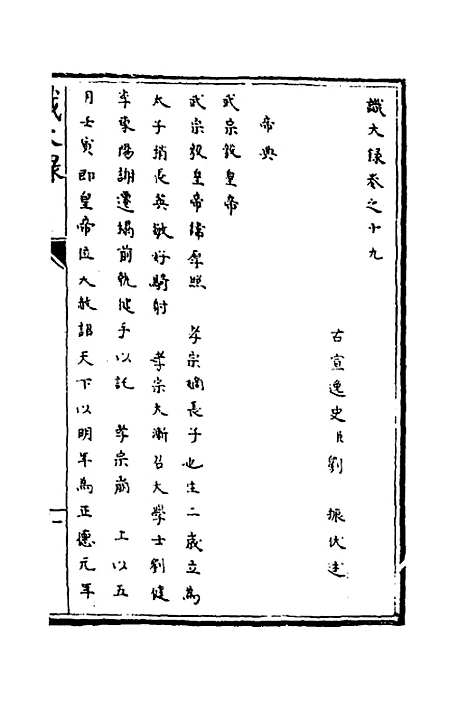 識大録卷之十九
古宣逸史臣劉　振伏述
帝典
武宗毅皇帝
武宗毅皇帝緯厚照　孝宗嫡長子也生二歲立為
太子稍長英敏好騎射　孝宗大漸召大學士劉健
李東陽謝遷榻前執健手以託　孝宗崩　上以五
月壬寅即皇帝位大赦詔天下以明年為正德元年
識大録